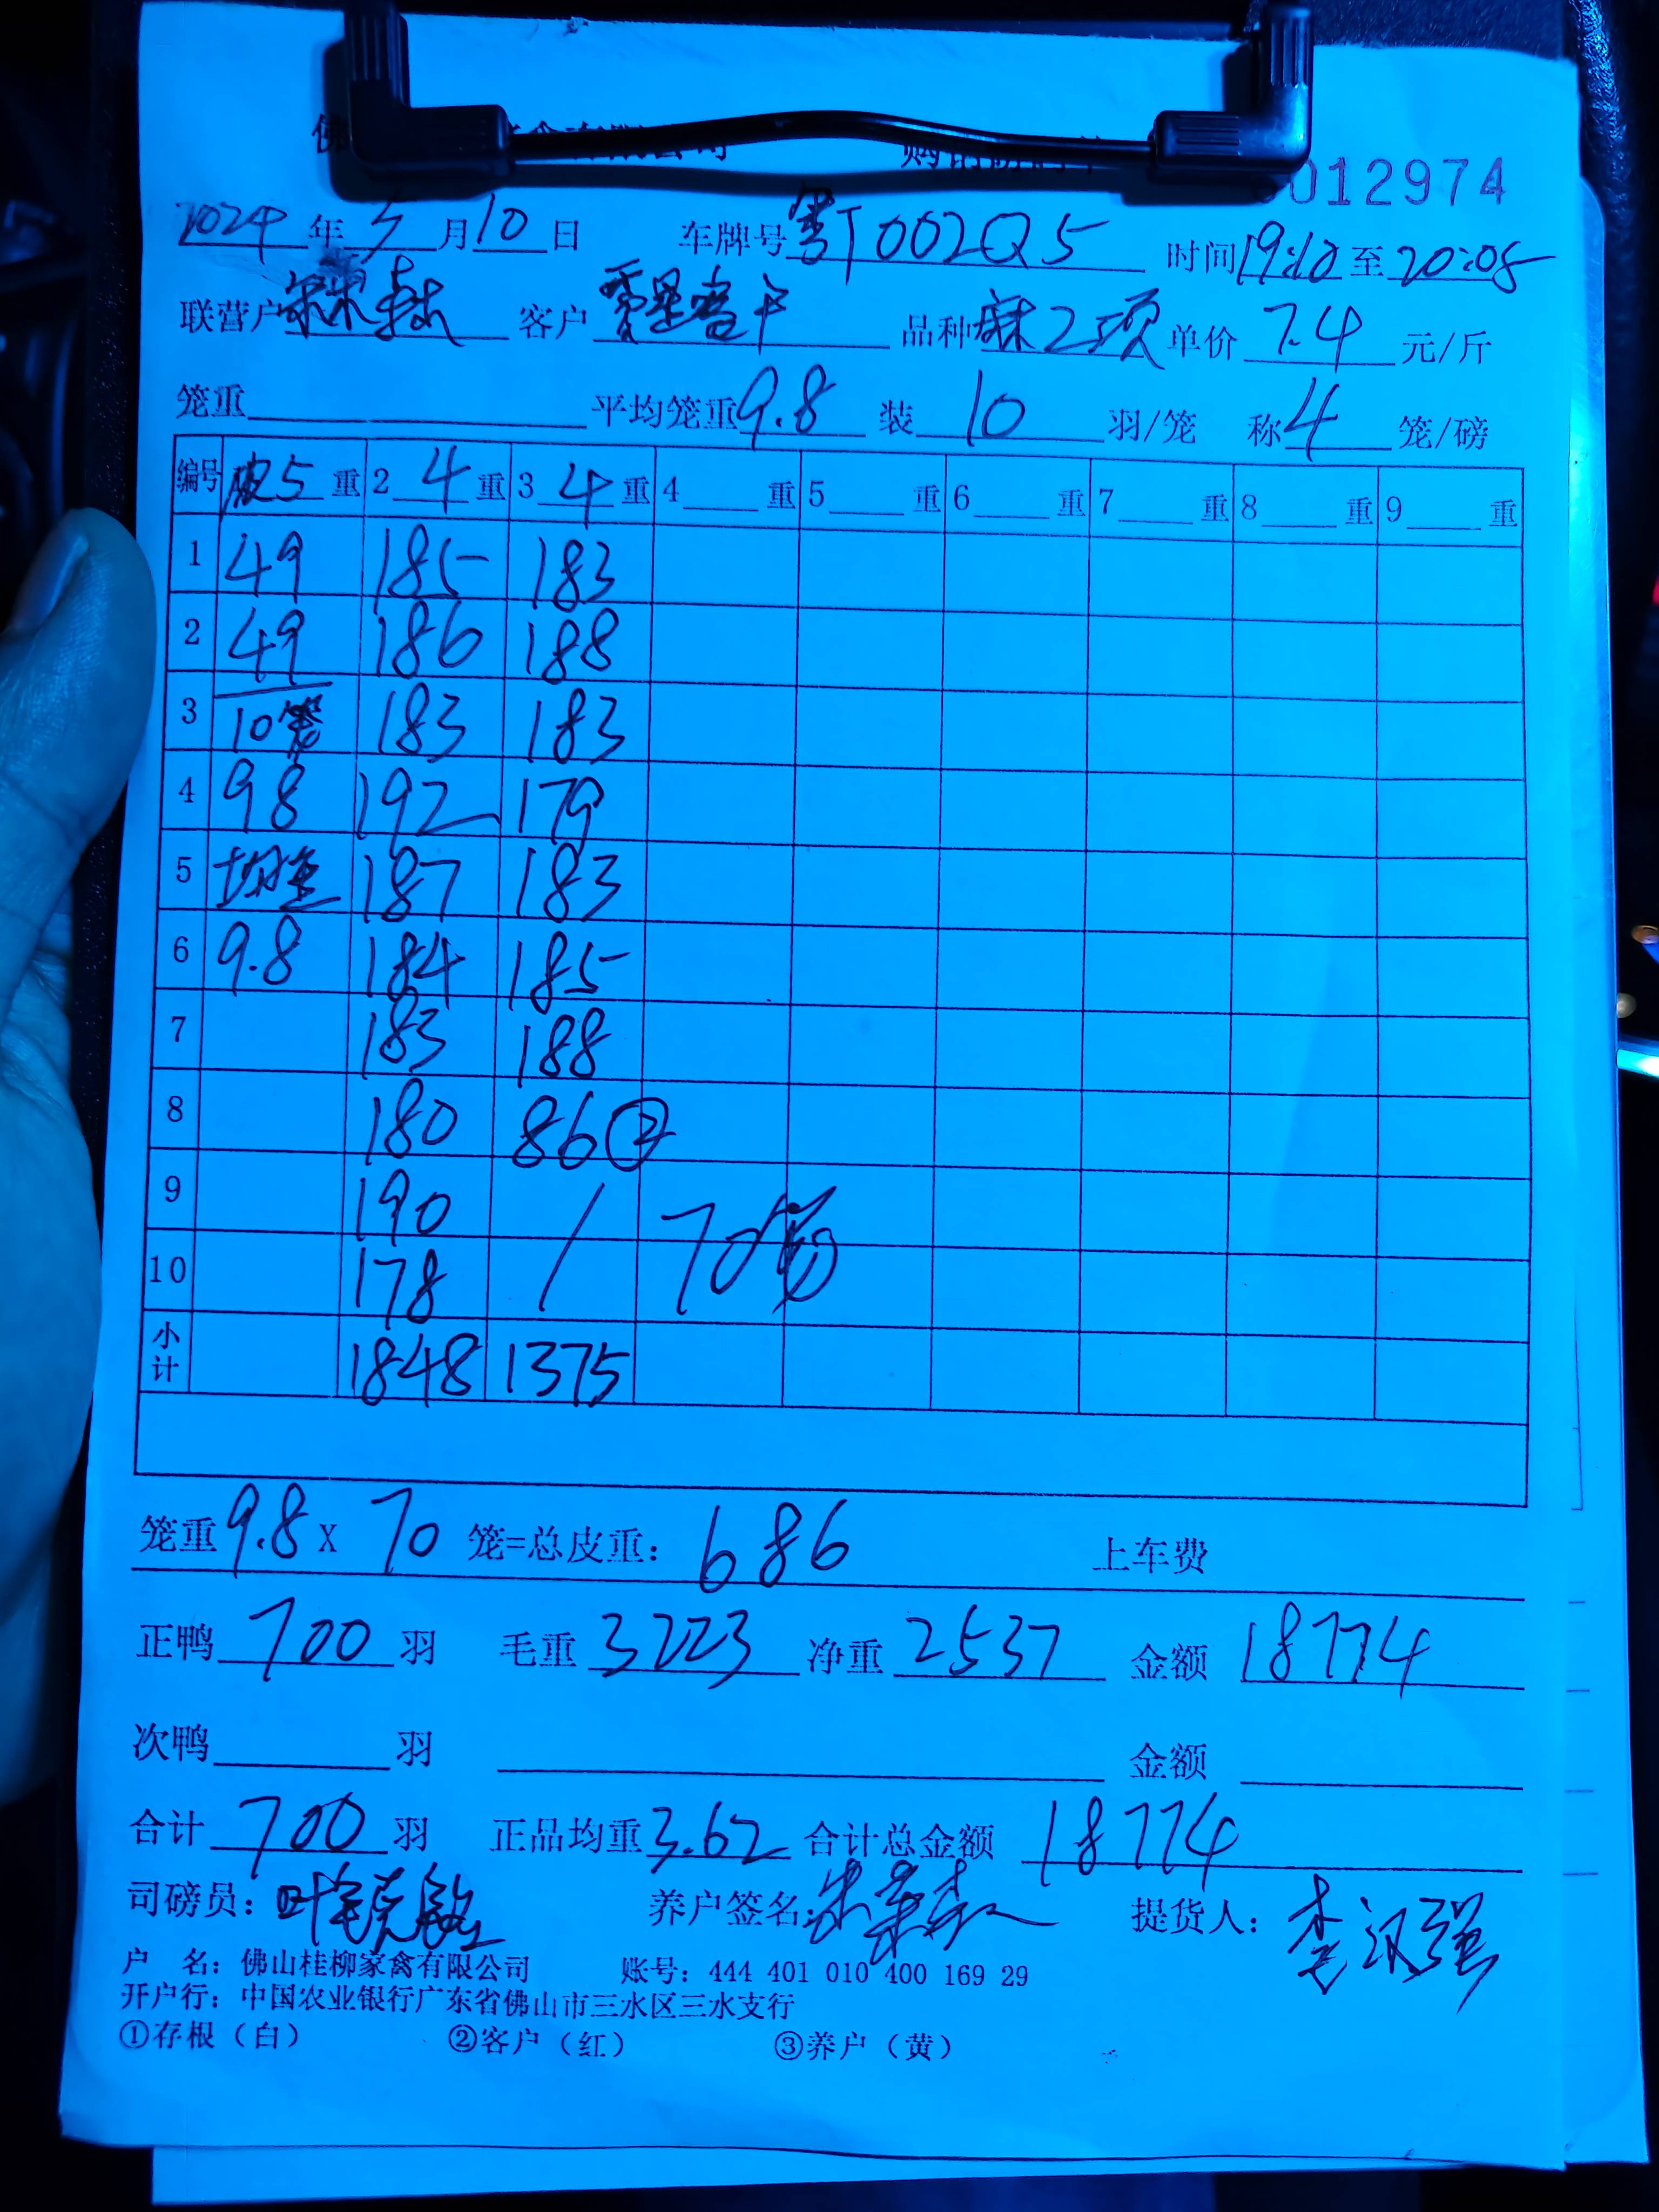 012974
2024年5月10日 车牌号粤T002Q5 时间19:10至20:08
联营户 客户 零星客户 品种麻2项 单价7.4元/斤
笼重 平均笼重9.8 装10羽/笼 称4笼/磅
编号 皮5重 2 4重 3 4重 4 重 5 重 6 重 7 重 8 重 9 重
1 49 185 183
2 49 186 188
3 10笼 183 183
4 98 192 179
5 均重 187 183
6 9.8 184 185
7 183 188
8 180 86②
9 190 / 70笼
10 178
小计 1848 1375
笼重9.8X70笼=总皮重：686 上车费
正鸭700羽 毛重3223 净重2537 金额18774
次鸭 羽 金额
合计700羽 正品均重3.62 合计总金额18774
司磅员： 养户签名： 提货人：李汉强
户 名：佛山桂柳家禽有限公司 账号：444 401 010 400 169 29
开户行：中国农业银行广东省佛山市三水区三水支行
①存根（白） ②客户（红） ③养户（黄）